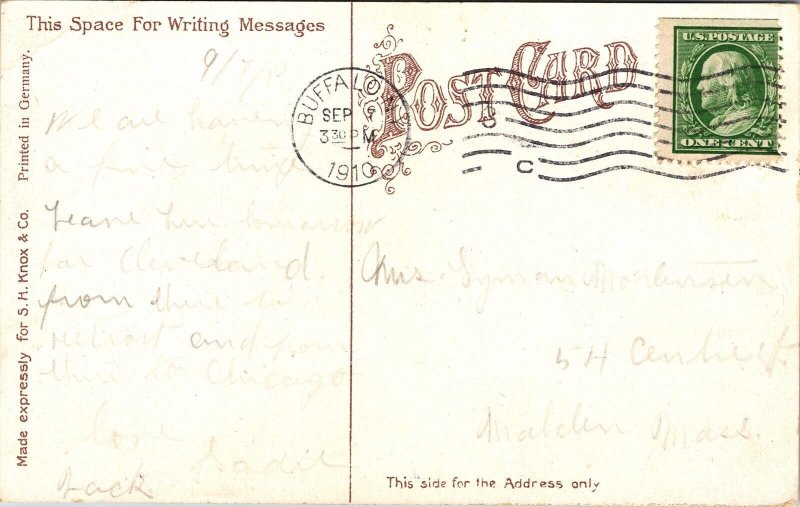 This Space For Writing Messages
9/7/10
We are having
a fine time
Leave here tomorrow
for Cleveland.
from there to
Detroit and from
there to Chicago
Love
Sadie
Jack
Printed in Germany.
Made expressly for S. H. Knox & Co.
POST CARD
BUFFALO, N.Y.
SEP 7
3 30 PM
1910
C
U.S. POSTAGE
ONE CENT
Mrs. Lyman
54 Centre St
Malden Mass.
This side for the Address only